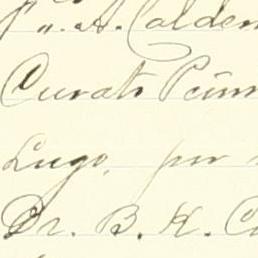 A. Calde
Curato
Lugo, por
Dr. B. K. C